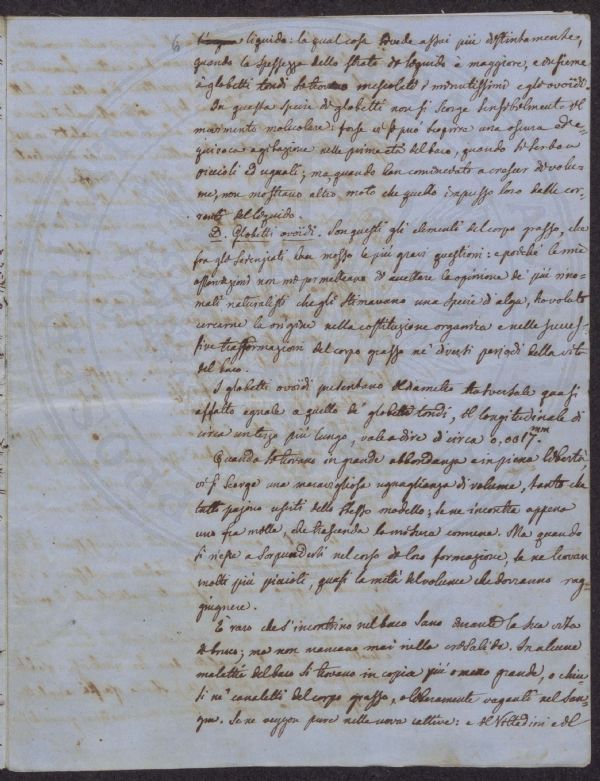 6
liquido: la qual cosa vede assai più distintamente,
quando la spessezza dello strato di liquido è maggiore, e insieme
à globetti tondi si trovano mescolati i minutissimi e gli ovoidi.
In questa specie di globetti non si scorge sensibilmente il
movimento molecolare: forse vi si può scoprire una oscura ed e-
quivoca agitazione nelle prime età del baco, quando si serbano
piccioli ed uguali; ma quando han cominciato a crescer di volu-
me, non mostrano altro moto che quello impresso loro dalle cor-
renti del liquido.
D. Globetti ovoidi. Son questi gli elementi del corpo grasso, che
fra gli Scienziati han mosso le più gravi questioni: e poiché le mie
osservazioni non mi permettono di accettare la opinione de' più rino-
mati naturalisti che gli stimavano una specie d'alga, ho voluto
cercarne la origine nella costituzione organica e nelle succes-
sive trasformazioni del corpo grasso ne' diversi periodi della vita
del baco.
I globetti ovoidi presentano il diametro trasversale quasi
affatto eguale a quello de' globetti tondi, il longitudinale di
circa un terzo più lungo, vale a dire d'circa 0,0017.mm
Quando si trovano in grande abbondanza e in piena libertà,
vi si scorge una maravigliosa uguaglianza di volume, tanto che
tutti pajono usciti dello stesso modello; se ne incontra appena
uno fra mille, che trascenda la misura comune. Ma quando
si riesce a sorprenderli nel corso di loro formazione, se ne trovan
molti più piccioli, quasi la metà del volume che dovranno rag-
giugnere.
È raro che s'incontrino nel baco sano durante la sua vita
di bruco; ma non mancano mai nella crisalide. In alcune
malattie del baco si trovano in copia più o meno grande, o chiu-
si ne' canaletti del corpo grasso, o liberamente vaganti nel san-
gue. Se ne veggon pure nelle uova cattive: e il Vittadini e il